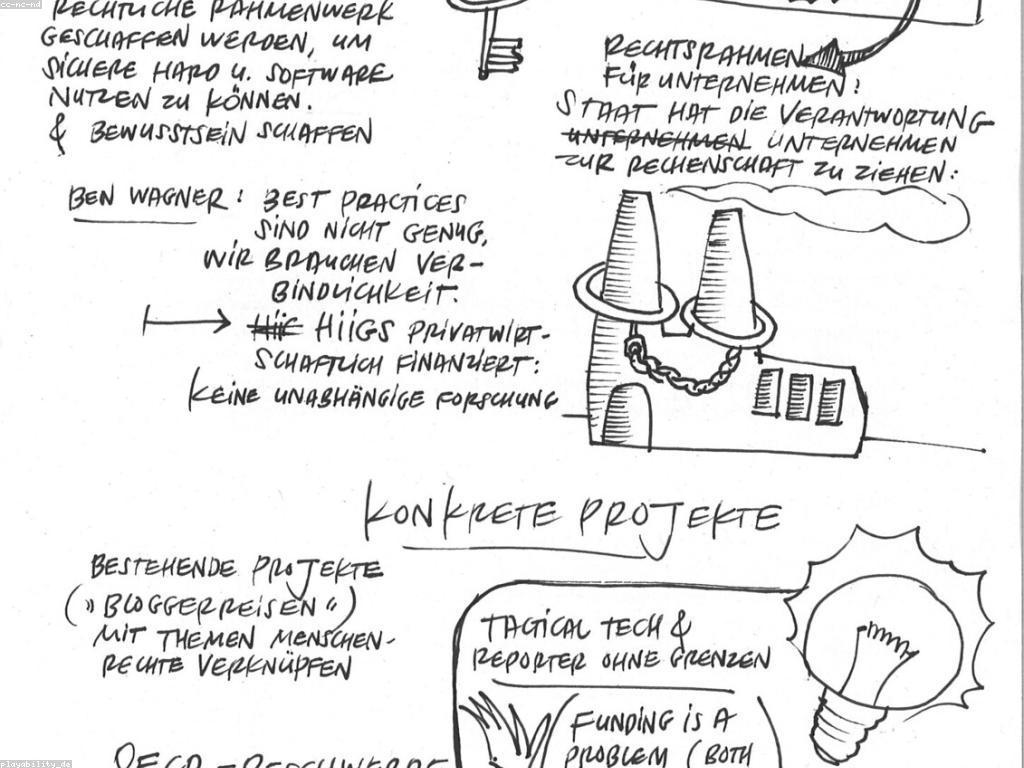 cc-nc-nd
RECHTLICHE RAHMENWERK
GESCHAFFEN WERDEN, UM
SICHERE HARD U. SOFTWARE
NUTZEN ZU KÖNNEN.
& BEWUSSTSEIN SCHAFFEN
RECHTSRAHMEN
FÜR UNTERNEHMEN:
STAAT HAT DIE VERANTWORTUNG
UNTERNEHMEN UNTERNEHMEN
ZUR RECHENSCHAFT ZU ZIEHEN:
BEN WAGNER: BEST PRACTICES
SIND NICHT GENUG,
WIR BRAUCHEN VER-
BINDLICHKEIT.
HIIG HIIGS PRIVATWIRT-
SCHAFTLICH FINANZIERT:
KEINE UNABHÄNGIGE FORSCHUNG
KONKRETE PROJEKTE
BESTEHENDE PROJEKTE
(»BLOGGERREISEN«)
MIT THEMEN MENSCHEN-
RECHTE VERKNÜPFEN
TACTICAL TECH &
REPORTER OHNE GRENZEN
FUNDING IS A
PROBLEM (BOTH
OECD-BESCHWERDE
playability_de